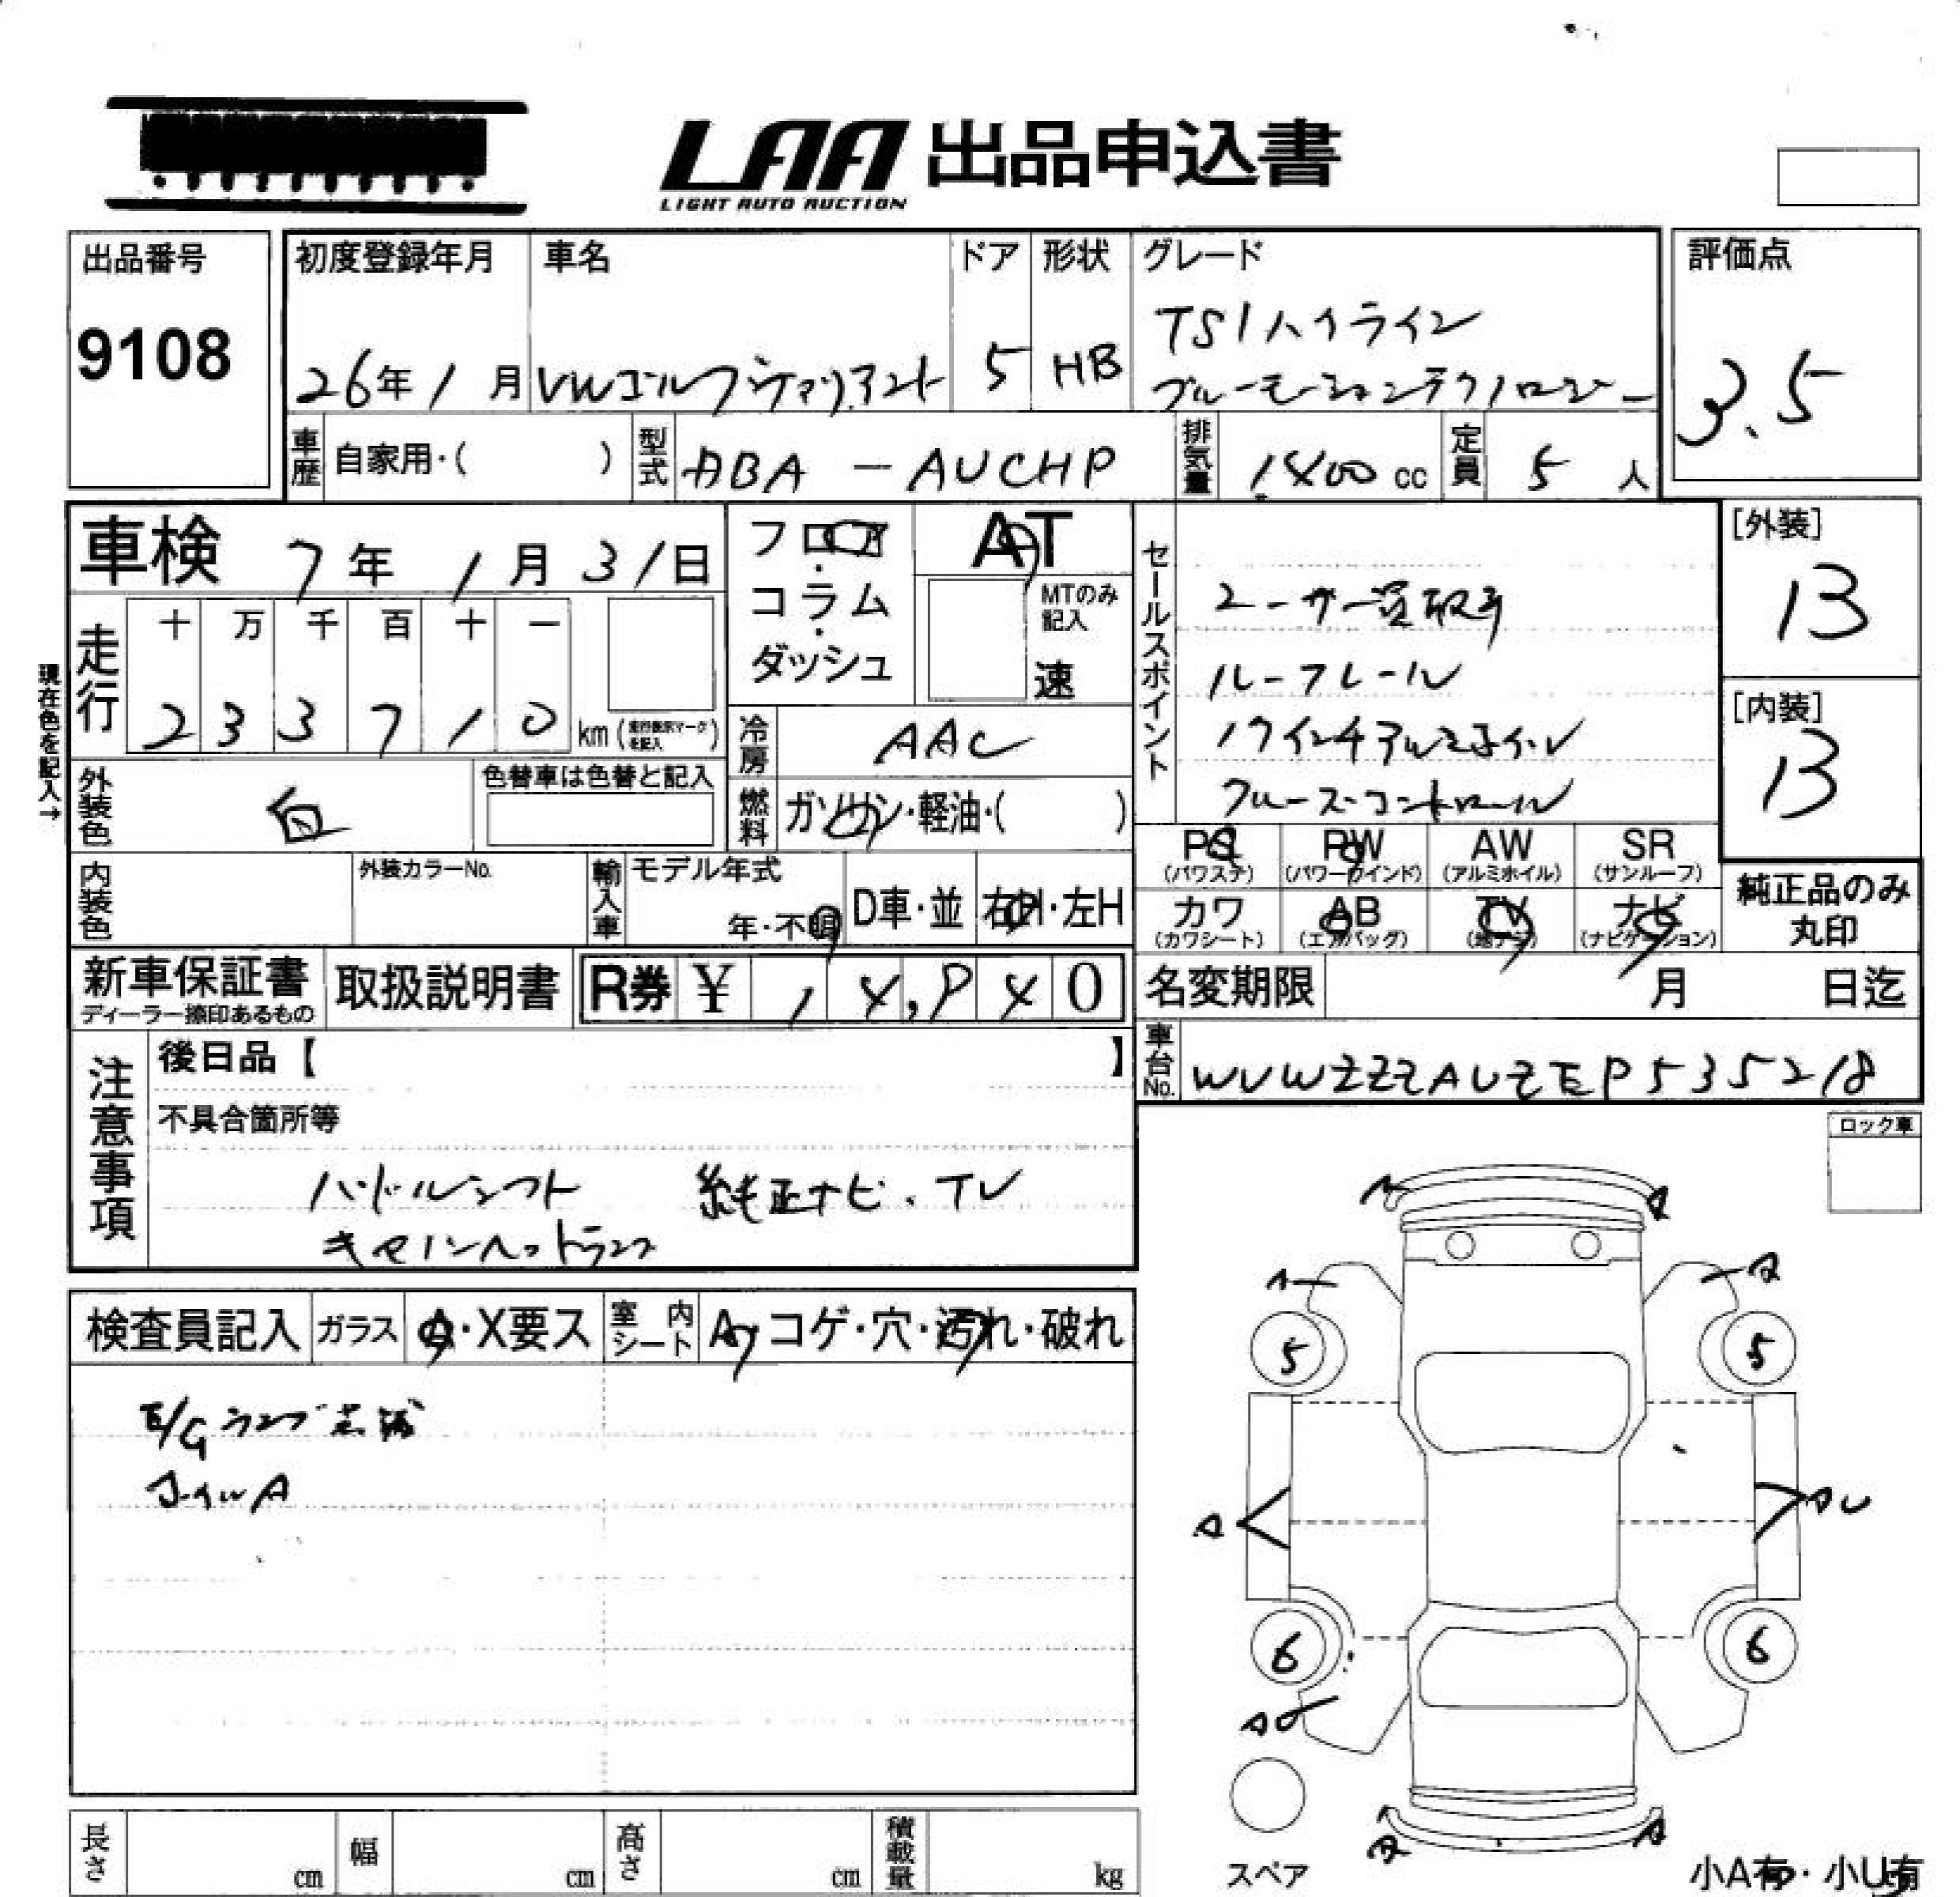 LAA 出品申込書
LIGHT AUTO AUCTION
出品番号
9108
初度登録年月
26年1月
車名
VWゴルフヴァリアント
ドア
5
形状
HB
グレード
TSIハイライン
ブルーモーションテクノロジー
評価点
3.5
車歴
自家用・( )
型式
ABA - AUCHP
排気量
1400 cc
定員
5 人
車検 7年1月31日
フロア・コラム・ダッシュ
AT
MTのみ記入
速
セールスポイント
ユーザー買取车
ルーフレール
17インチアルミホイル
クルーズコントロール
[外装]
13
[内装]
13
現在色を記入→
走行
十 万 千 百 十 一
2 3 3 7 1 0 km (走行表示マークを記入)
冷房
AAC
燃料
ガソリン・軽油・( )
外装色
白
色替車は色替と記入
内装色
外装カラーNo.
輸入車
モデル年式
年・不明
D車・並
右H・左H
PS
(パワステ)
PW
(パワーウインド)
AW
(アルミホイル)
SR
(サンルーフ)
カワ
(カワシート)
AB
(エアバッグ)
TV
(地デジ)
ナビ
(ナビゲーション)
純正品のみ
丸印
新車保証書
ディーラー捺印あるもの
取扱説明書
R券 ¥ 1 4,9 4 0
名変期限 月 日迄
車台No.
WVWZZZAUZEP535218
注意事項
後日品【 】
不具合箇所等
パドルシフト 純正ナビ・TV
キセノンヘッドランプ
ロック車
検査員記入
ガラス
A・X要ス
室内シート
A・コゲ・穴・汚れ・破れ
E/Gランプ点滅
ホイルA
A
A
A
A
5
5
A
AU
6
6
AU
A
A
スペア
小A有・小U有
長さ cm
幅 cm
高さ cm
積載量 kg